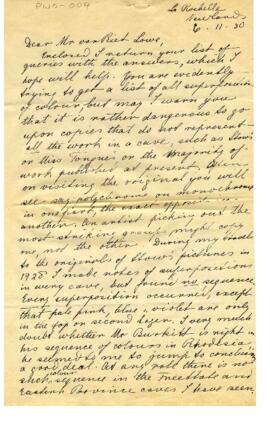 PWS-004
La Rochelle
Newlands
6.11.30
Dear Mr van Riet Lowe,
Enclosed I return your list of
queries with the answers, which I
hope will help. You are evidently
trying to get a list of all superposition
of colour, but may I warn you
that it is rather dangerous to go
upon copies that do not represent
all the work in a cave, such as Stow's
or Miss Tongue's or the majority of
work published at present. When
on visiting the original you will
see say polychrome on monochrome
in one part, the exact opposite in
another. An artist picking out the
most striking group might copy
one, not the other. During my travels
to the originals of Stow's pictures in
I made notes of superpositions
in every cave, but found no sequence.
Every superposition occurred, except
that pale pink, blue & violet are only
in the top or second layer. I very much
doubt whether Mr Burkitt is right in
his sequence of colours in Rhodesia,
he seemed to me to jump to conclusions
a good deal. At any rate there is no
such colour sequence in the Free State and
Eastern Province caves I have seen.